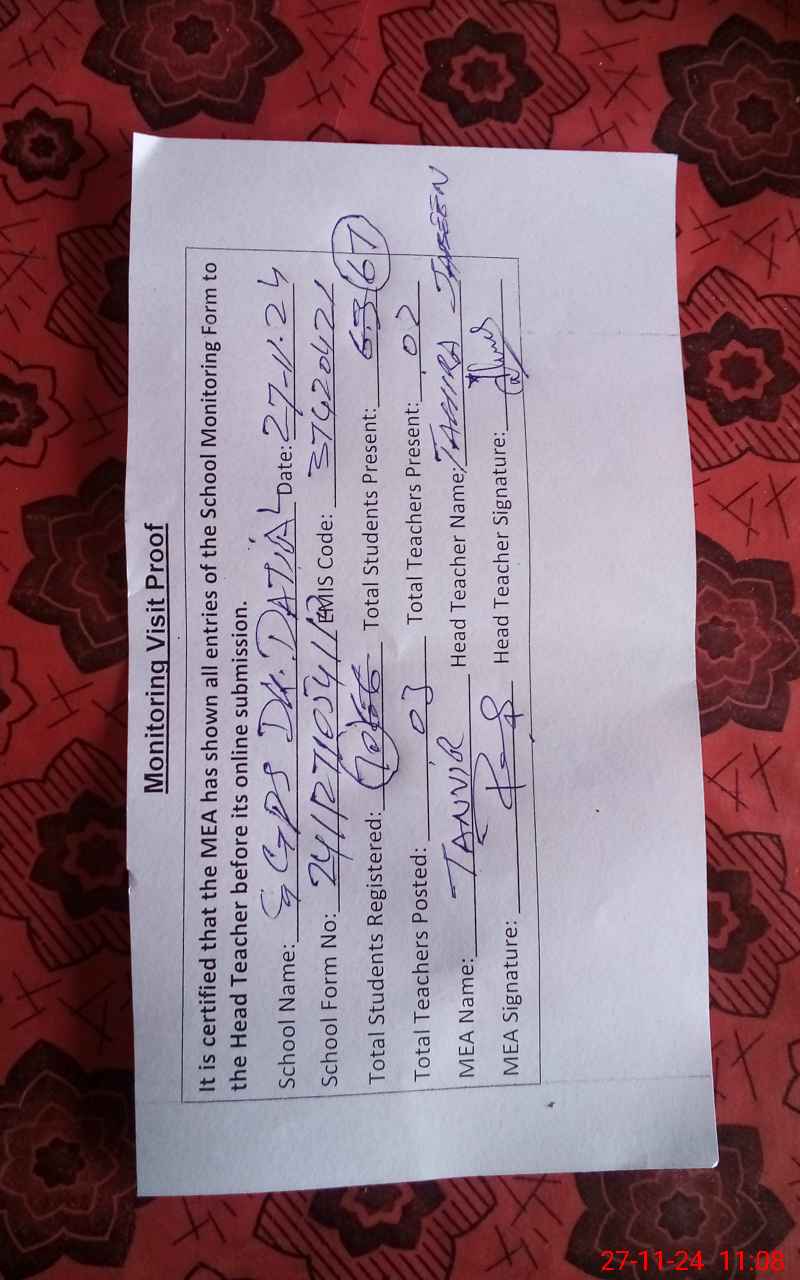 Monitoring Visit Proof
It is certified that the MEA has shown all entries of the School Monitoring Form to
the Head Teacher before its online submission.
School Name: GGPS DK. DATIAL Date: 27-11-24
School Form No: EMIS Code: 37420421
Total Students Registered: 70 Total Students Present: 63 67
Total Teachers Posted: 03 Total Teachers Present: 02
MEA Name: TANVIR Head Teacher Name: TAHIRA JABEEN
MEA Signature: Head Teacher Signature:
27-11-24 11:08